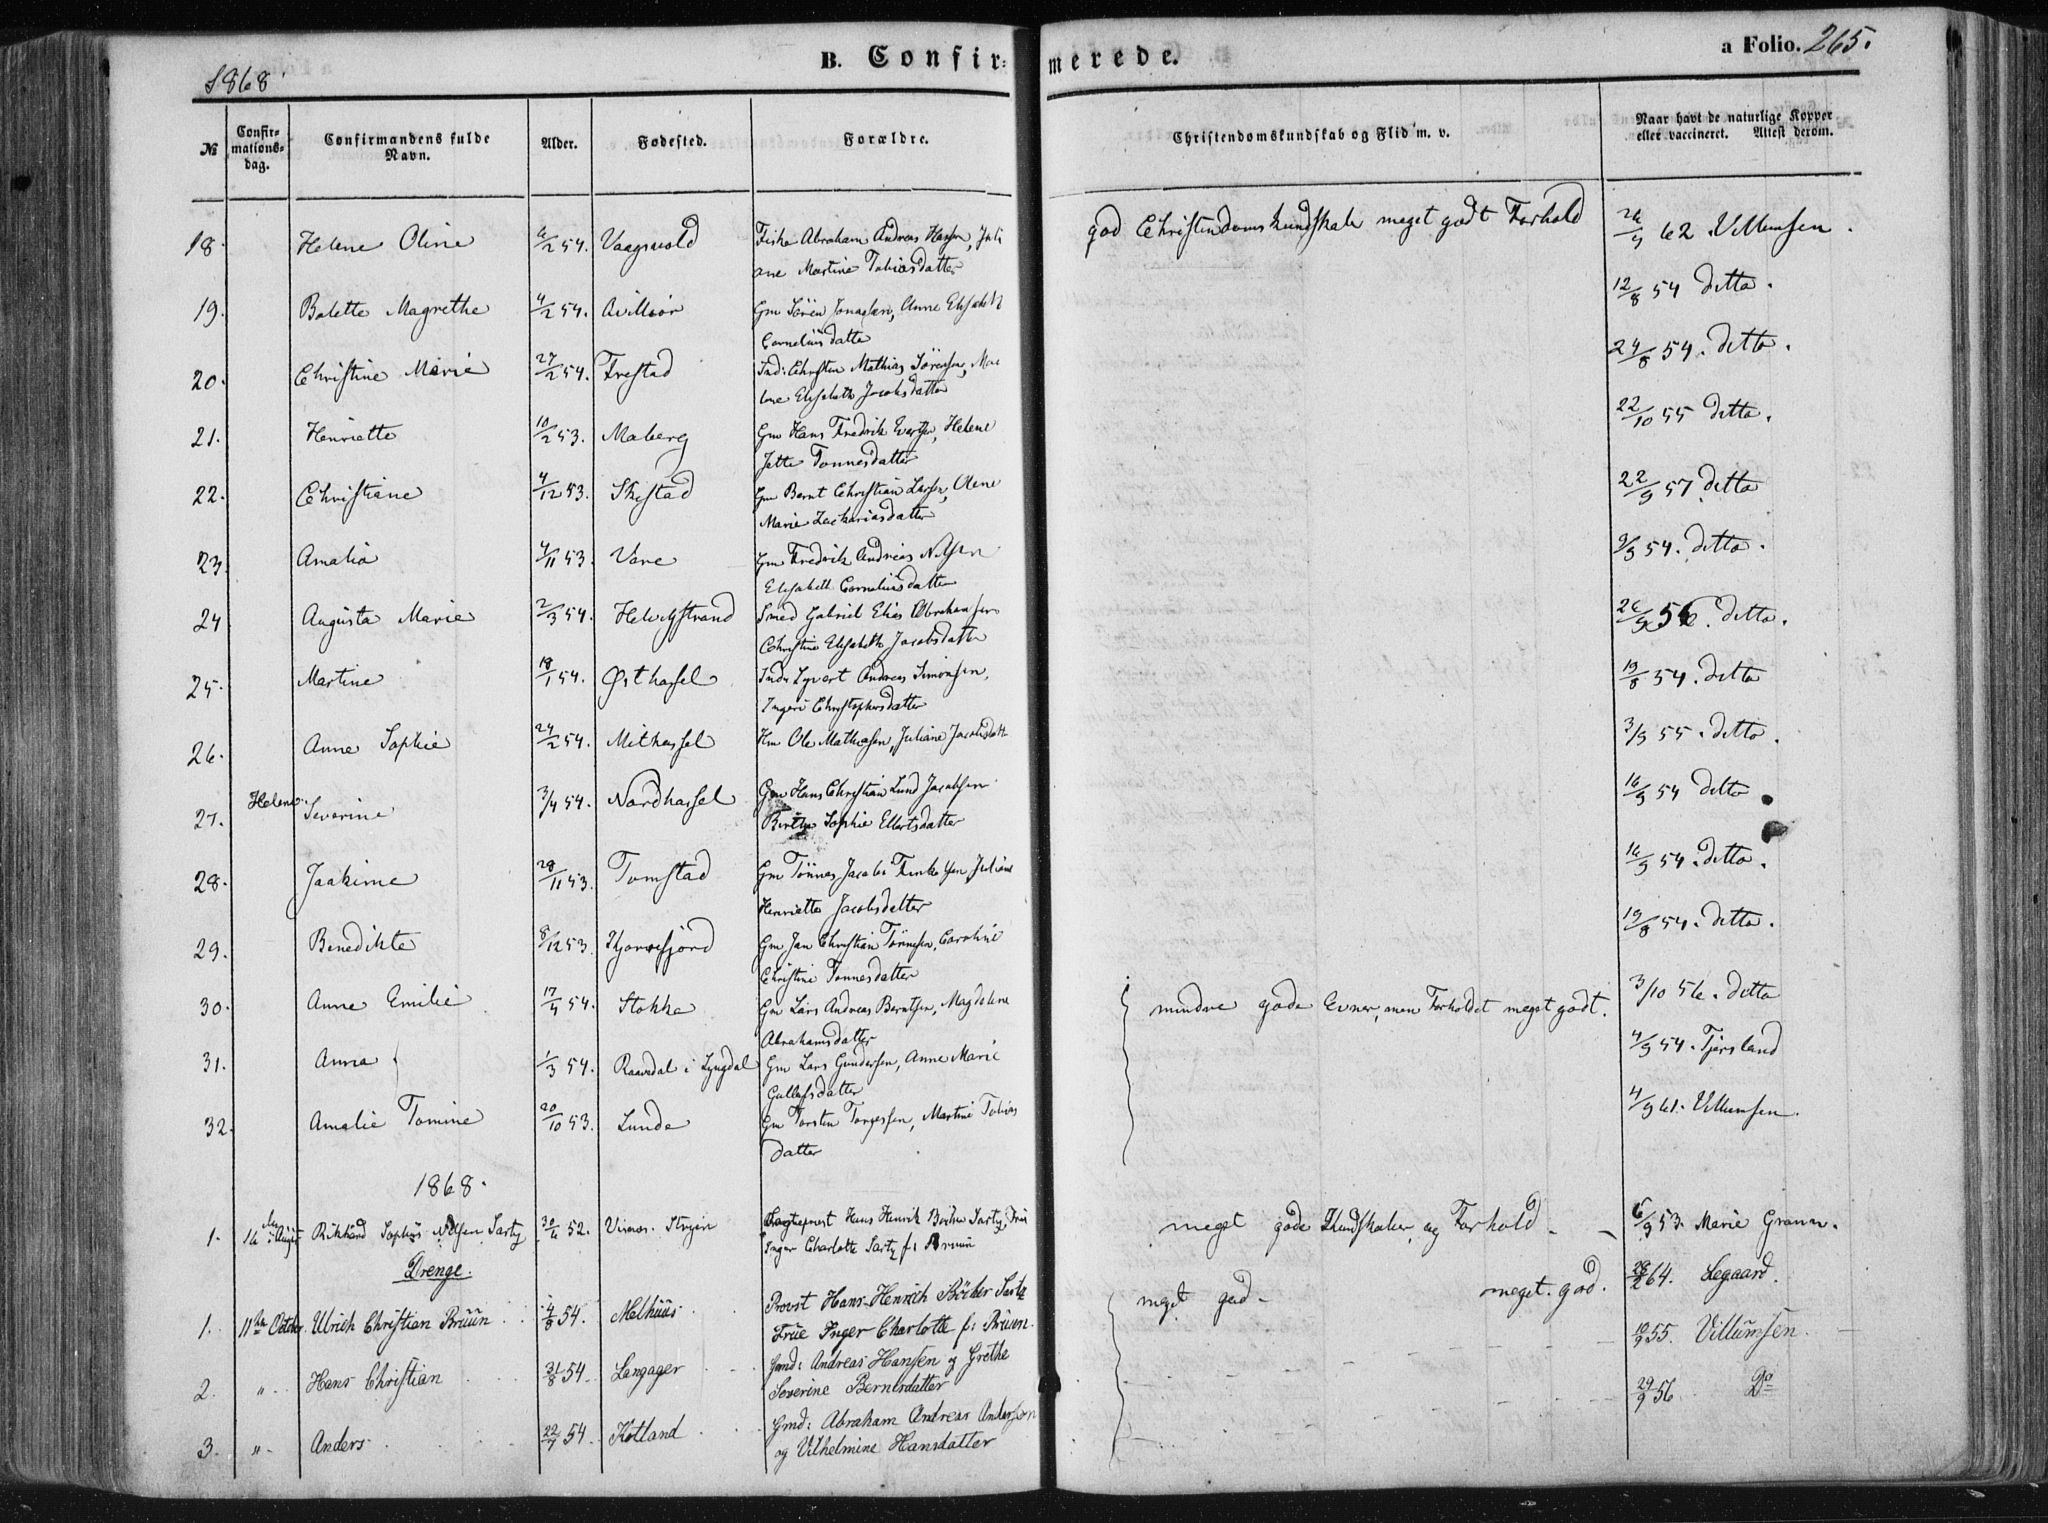 1868
B. Confir-
merede.
a Folio. 265.
№
Confir-
mations-
dag.
Confirmandens fulde
Navn.
Alder.
Fødested.
Forældre.
Christendomskundskab og Flid m. v.
Naar havt de naturlige Kopper
eller vaccineret. Attest derom.
18. Helene Oline 6/2 54. Vaagsvold Abraham Andreas Hansen, Juli
ane Martine Tobiasdatter
god Christendomskundskab meget godt Forhold 26/9 62 Villumsen.
19. Bolette Magrethe 4/2 54. Gm Sören Anne Elisabeth
Corneliusdatter
12/8 54 ditto.
20. Christine Marie 27/2 54. Frestad Ind: Christen Mathias Sörensen,
Elisabeth Jacobsdatter
24/8 54. ditto.
21. Henriette 10/2 53. Maberg Gm Hans Fredrik Helene
Jette Tonnesdatter
22/10 55 ditto.
22. Christiane 4/12 53. Skeistad Gm Bernt Christian Larsen, Olene
Marie Zachariasdatter
22/9 57 ditto
23. Amalia 4/11 53. Vere Gm Fredrik Andreas Nilsen
Elisabeth Corneliusdatter
9/9 54. ditto.
24 Augusta Marie 2/3 54. Helvigstrand Smed Gabriel Elias Abrahamsen
Christine Elisabeth Jacobsdatter
26/9 56. ditto.
25. Martine 18/1 54. Østhassel Andreas Simonsen,
Ingeri Christophersdatter
19/8 54. ditto
26. Anne Sophie 24/2 54. Mithassel Hm Ole Mathiasen, Juliane Jacobsdatt
3/9 55. ditto.
27. Helene Severine 3/4 54. Nordhassel Gm Hans Christian Lund Jacobsen
Birthe Sophie Ellertsdatter
16/9 54 ditto
28. Joakime 28/11 53. Tomstad Gm Tönnes Jacob Juliane
Henriette Jacobsdatter
16/9 54. ditto.
29. Benedikte 8/12 53. Gm Jan Christian Tönnesen, Caroline
Christine Tonnesdatter
19/8 54. ditto.
30. Anne Emilie 17/4 54. Stokke Gm Lars Andreas Berntsen, Magdelene
Abrahamsdatter
mindre gode Evner, men Forholdet meget godt. 3/10 56. ditto
31. Anna 1/3 54. i Lyngdal Gm Lars Gundersen, Anne Marie
datter
4/9 54. Tjersland
32. Amalie Tomine 20/10 53. Lunde Gm Torsten Torgersen, Martine Tobias
datter
4/9 61. Villumsen.
1868.
1. 16 August Rikhard Sophus Nilsen Sartz 30/6 52. Sogneprest Hans Henrik Sartz, Frue
Inger Charlotte Sartz f: Bruun
meget gode Kundskaber og Forhold 6/9 53. Marie Grann.
Drenge.
1. 11te October. Ulrich Christian Brüün 4/8 54. Melhüüs Provst Hans Henrich Böcker Sartz
Frue Inger Charlotte f: Brüün.
meget god meget god. 28/2 64. Legaard.
2. " Hans Christian 31/8 54. Langager Gmd: Andreas Hansen og Grethe
Severine Berntsdatter
10/9 55. Villümsen.
3. " Anders 22/7 54. Kotland Gmd: Abraham Andreas Andersen
og Vilhelmine Hansdatter
29/9 56 Do